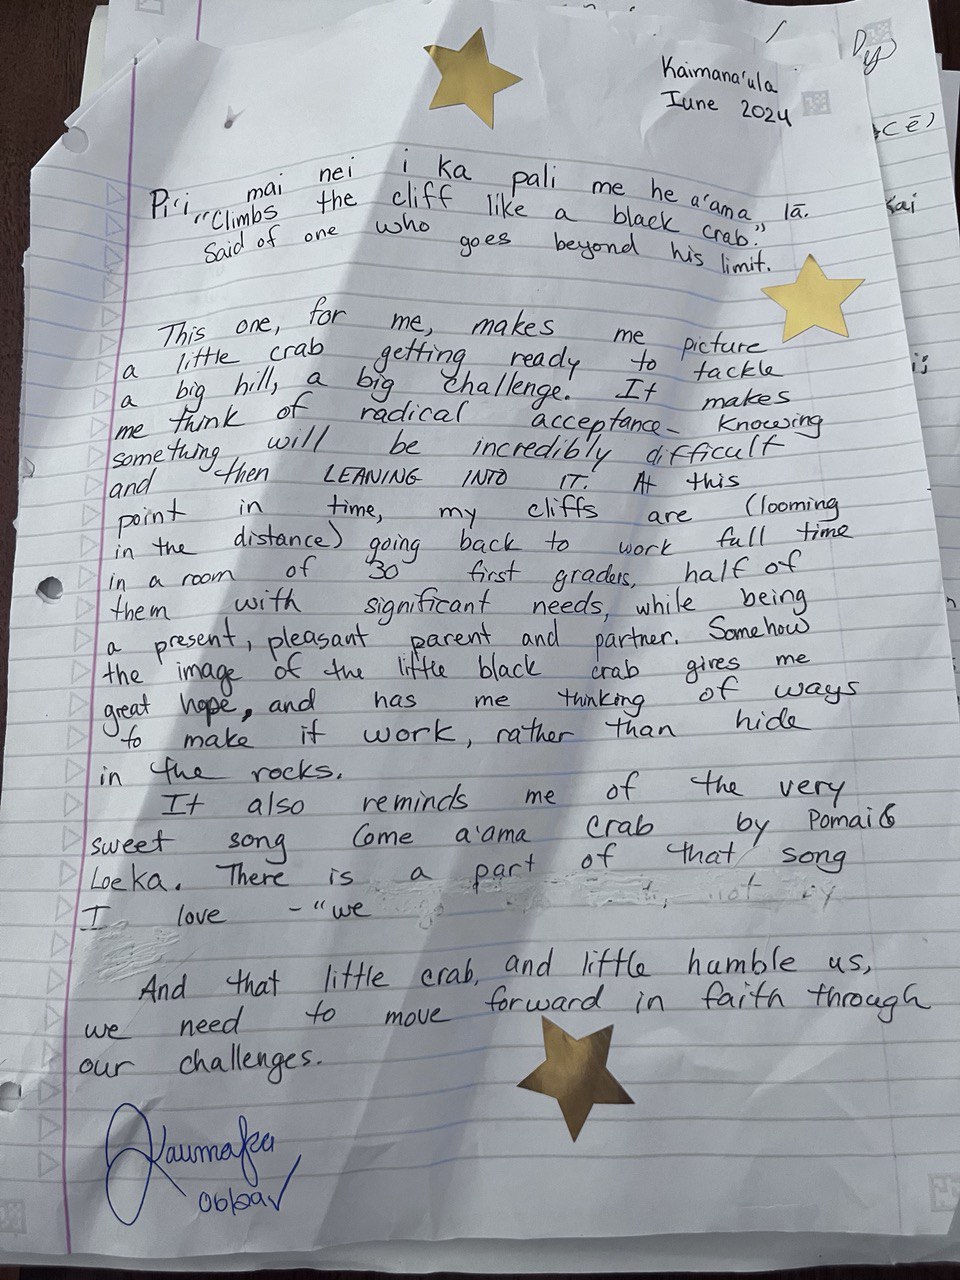 Kaimana'ula
Iune 2024
Pi'i mai nei i ka pali me he a'ama lā.
"Climbs the cliff like a black crab."
Said of one who goes beyond his limit.
This one, for me, makes me picture
a little crab getting ready to tackle
a big hill, a big challenge. It makes
me think of radical acceptance- knowing
something will be incredibly difficult
and then LEANING INTO IT. At this
point in time, my cliffs are (looming
in the distance) going back to work full time
in a room of 30 first graders, half of
them with significant needs, while being
a present, pleasant parent and partner. Somehow
the image of the little black crab gives me
great hope, and has me thinking of ways
to make it work, rather than hide
in the rocks.
It also reminds me of the very
sweet song Come a'ama crab by Pomai &
Loeka. There is a part of that song
I love - "we
And that little crab, and little humble us,
we need to move forward in faith through
our challenges.
Kaumaka
Dy
cē)
kai